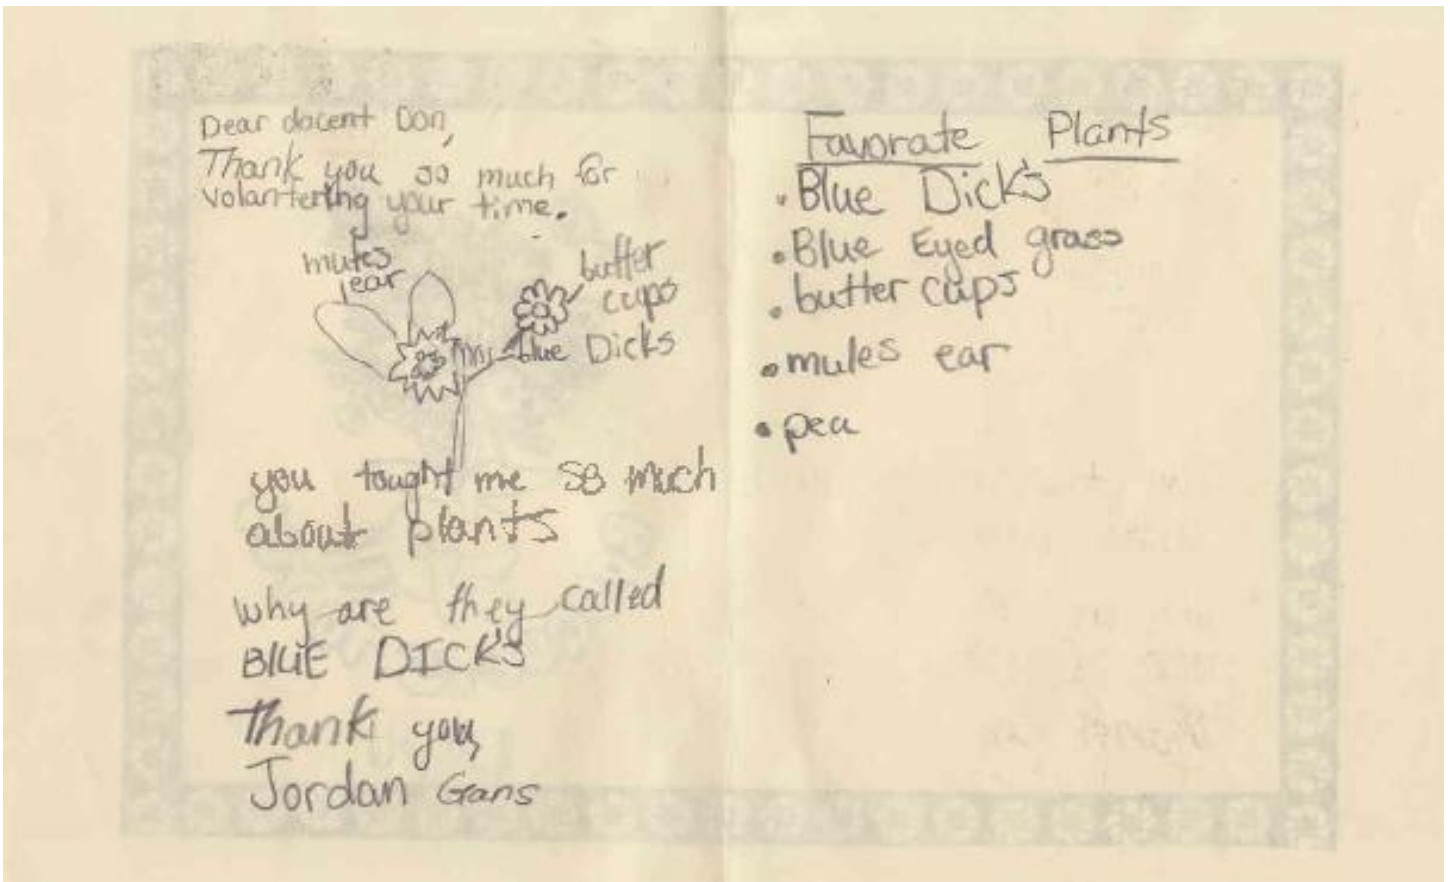 Dear docent Don,
Thank you so much for
volantering your time.
mules
ear
butter
cups
blue Dicks
you tought me so much
about plants
why are they called
BlUE DICK'S
Thank you,
Jordan Gans
Favorate Plants
• Blue Dick's
• Blue Eyed grass
• butter cups
• mules ear
• pea